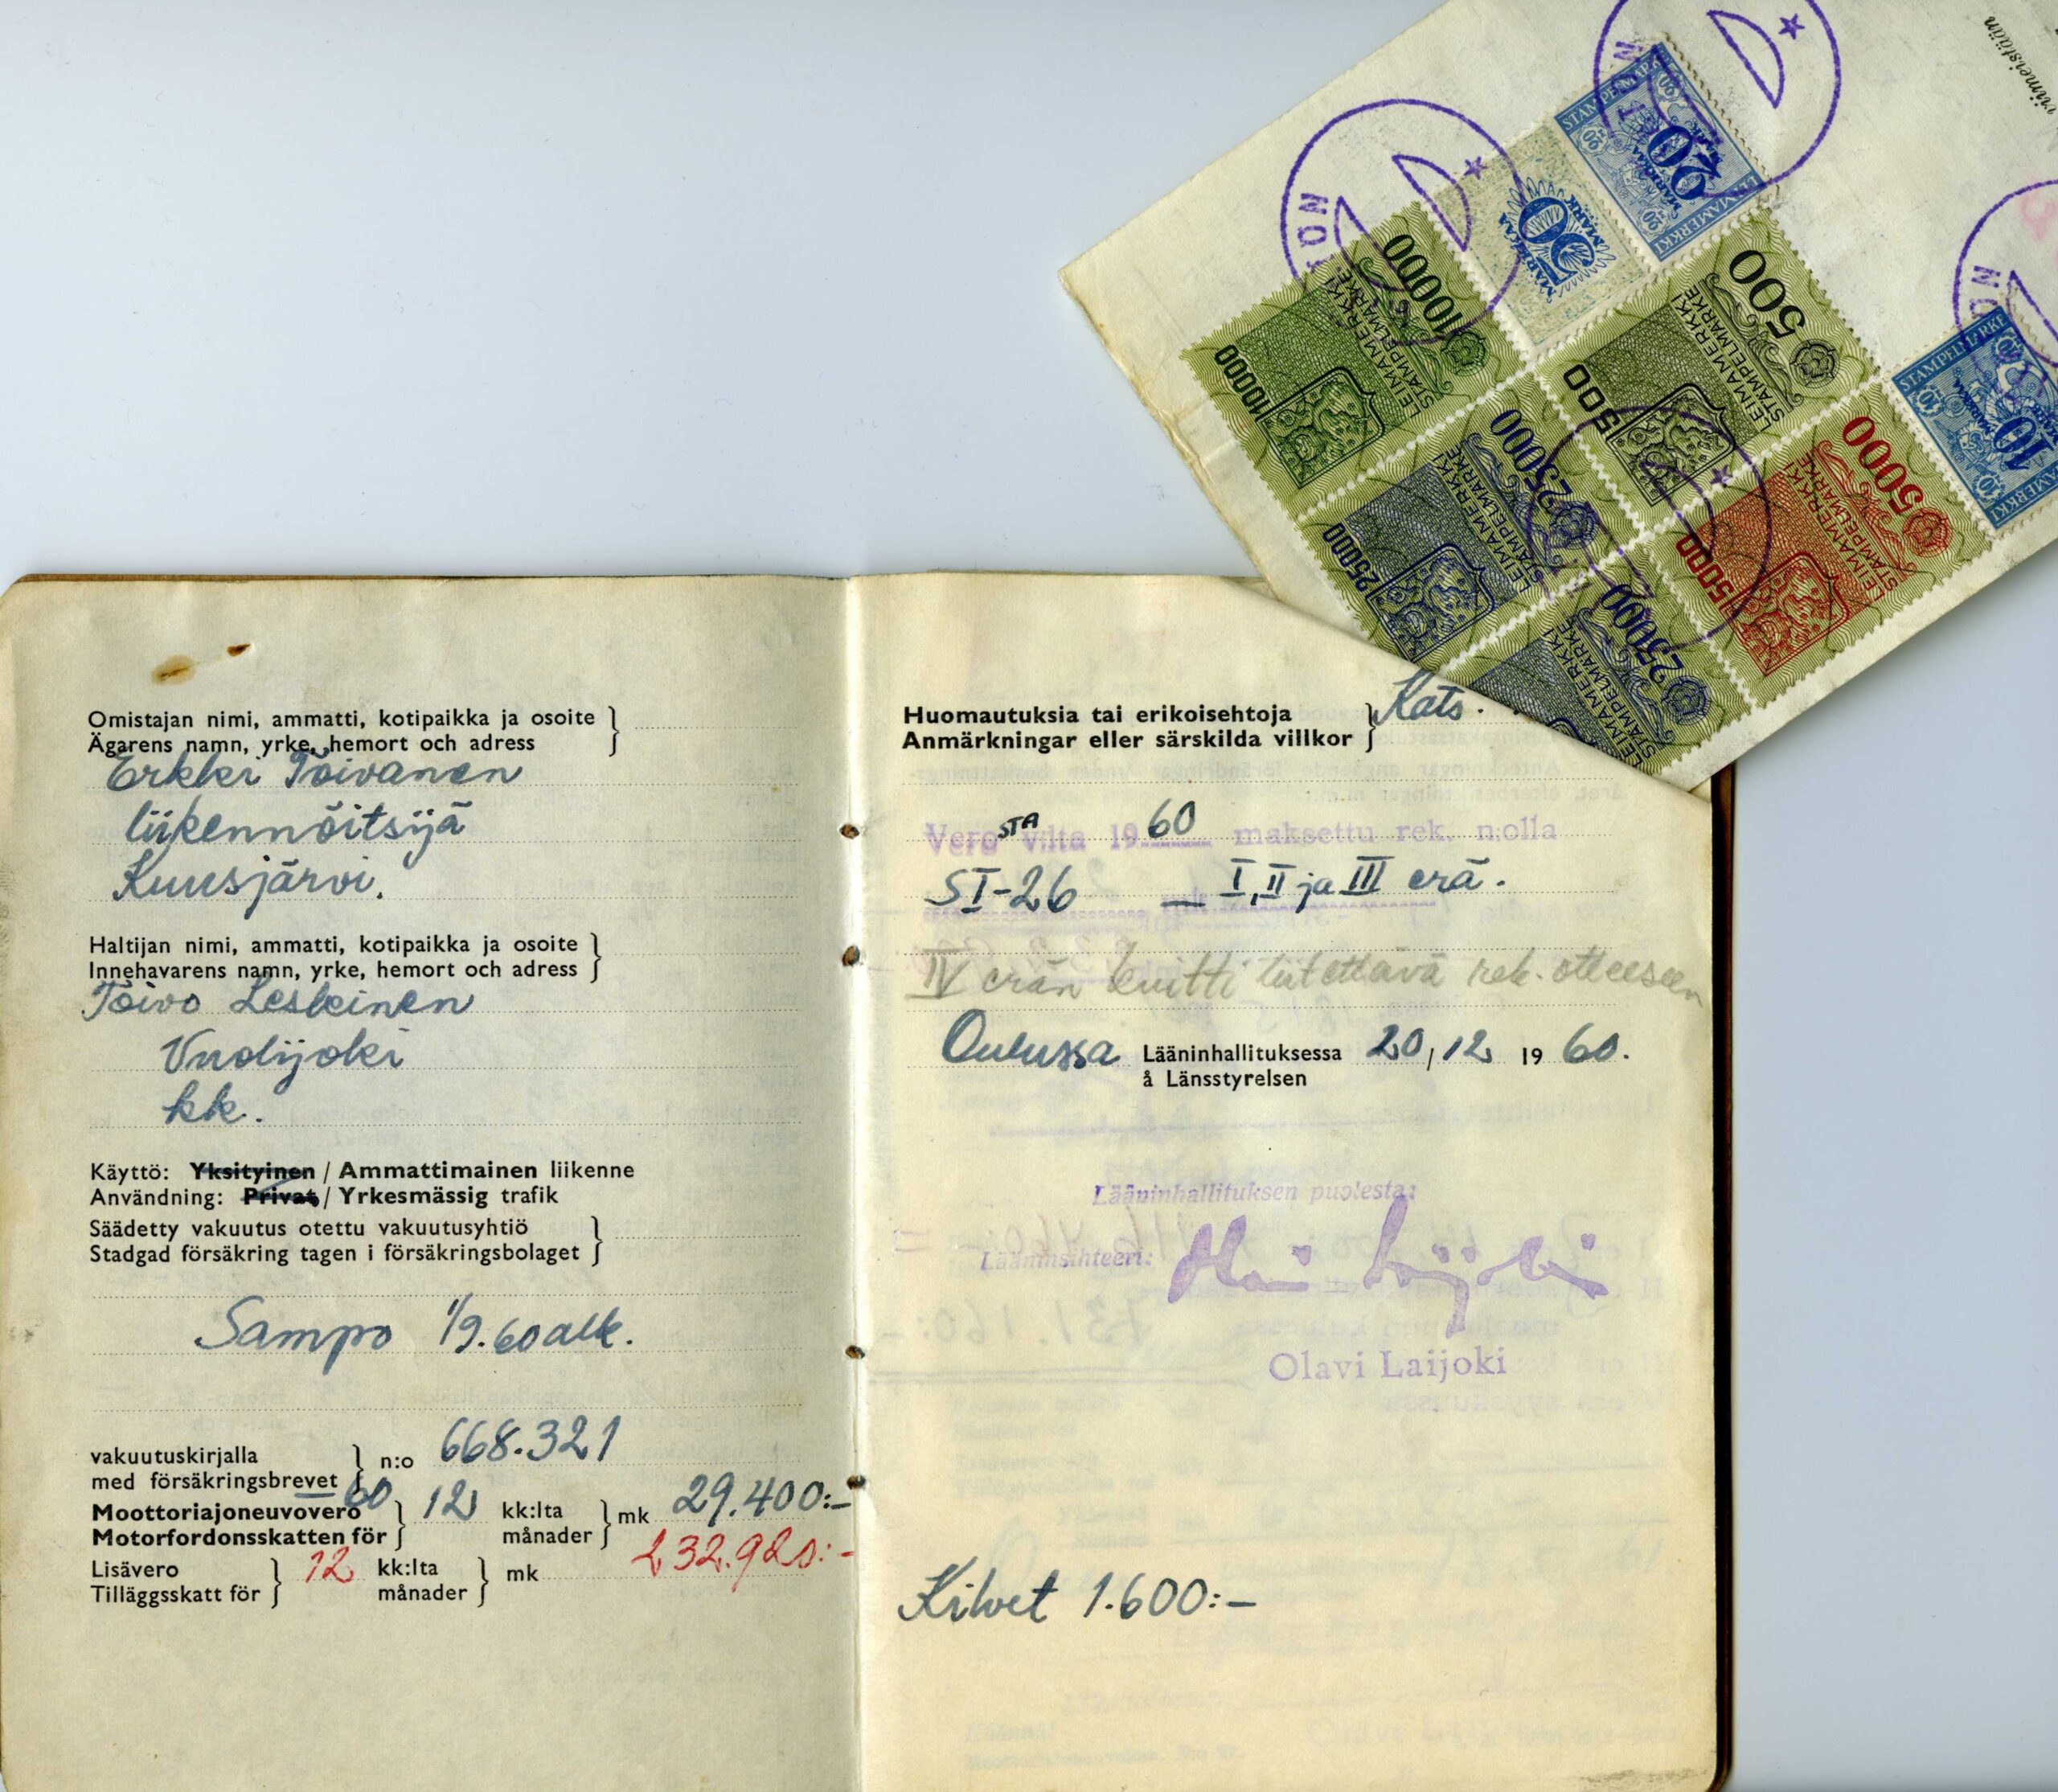 Omistajan nimi, ammatti, kotipaikka ja osoite
Ägarens namn, yrke, hemort och adress
Erkki Toivanen
liikennöitsijä
Kuusjärvi.
Haltijan nimi, ammatti, kotipaikka ja osoite
Innehavarens namn, yrke, hemort och adress
Toivo Leskinen
Vuolijoki
kk.
Käyttö: Yksityinen / Ammattimainen liikenne
Användning: Privat / Yrkesmässig trafik
Säädetty vakuutus otettu vakuutusyhtiö
Stadgad försäkring tagen i försäkringsbolaget
Sampo 1/9.60 alk.
vakuutuskirjalla
med försäkringsbrevet
n:o 668.321
60
Moottoriajoneuvovero
Motorfordonsskatten för
12 kk:lta
månader
mk 29.400:-
Lisävero
Tilläggsskatt för
12 kk:lta
månader
mk 232.920:-
Huomautuksia tai erikoisehtoja
Anmärkningar eller särskilda villkor
Kats.
Vero STA v:lta 1960 maksettu rek. n:olla
SI-26 — I, II ja III erä.
IV erän kuitti liitettävä rek. otteeseen
Oulussa Lääninhallituksessa 20/12 1960.
å Länsstyrelsen
Lääninhallituksen puolesta:
Lääninsihteeri:
Olavi Laijoki
Kilvet 1.600:-
viimeistään
STAMPELMARK
20
MARKKAA
MARK
LEIMAMERKKI
50
MARKKAA
MARK
10000
LEIMAMERKKI
STÄMPELMARKE
10000
500
LEIMAMERKKI
STÄMPELMARKE
500
STÄMPELMÄRKE
10
MARKKAA
MARK
LEIMAMERKKI
25000
LEIMAMERKKI
STÄMPELMARKE
25000
5000
LEIMAMERKKI
STÄMPELMARKE
5000
25000
LEIMAMERKKI
STÄMPELMARKE